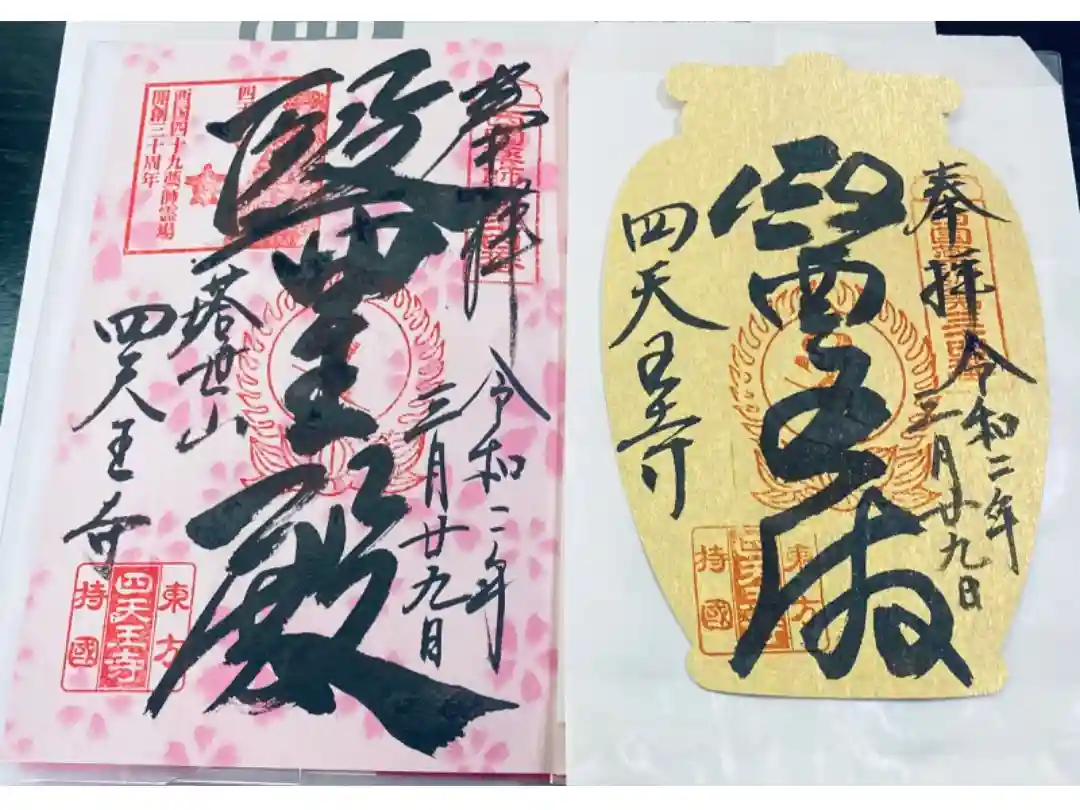 奉拝
令和二年
三月廿九日
醫王殿
塔世山
四天王寺
西国四十九薬師霊場
開創三十周年
東方
四天王寺
持國
奉拝
令和二年
三月廿九日
醫王殿
四天王寺
東方
四天王寺
持國